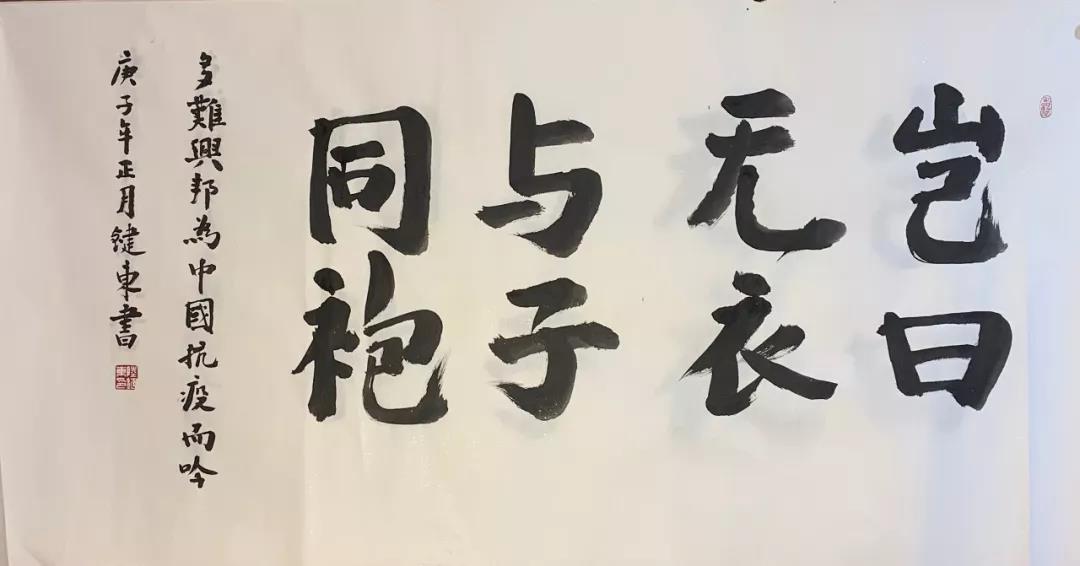 岂曰
无衣
与子
同袍
多難興邦為中國抗疫而吟
庚子年正月鍵東書